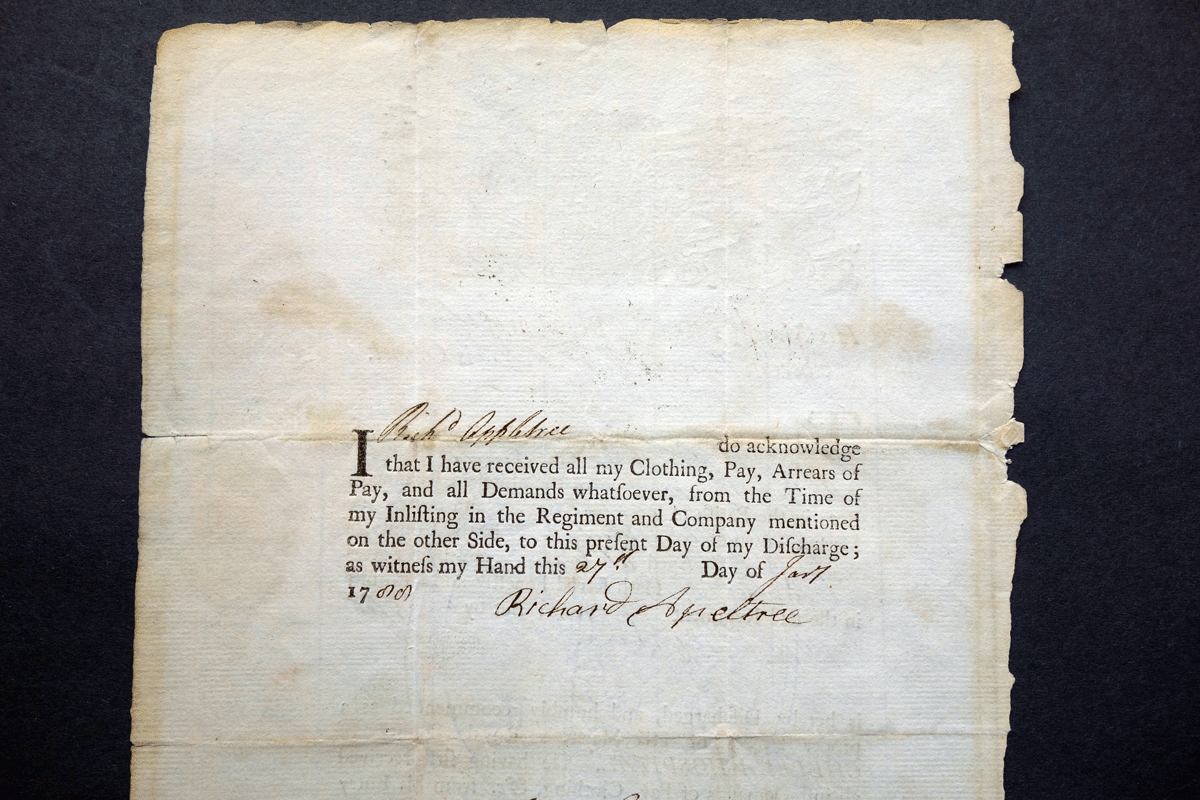 I Richd Appletree do acknowledge
that I have received all my Clothing, Pay, Arrears of
Pay, and all Demands whatſoever, from the Time of
my Inliſting in the Regiment and Company mentioned
on the other Side, to this preſent Day of my Diſcharge;
as witneſs my Hand this 27th Day of
1788 Richard Apeltree